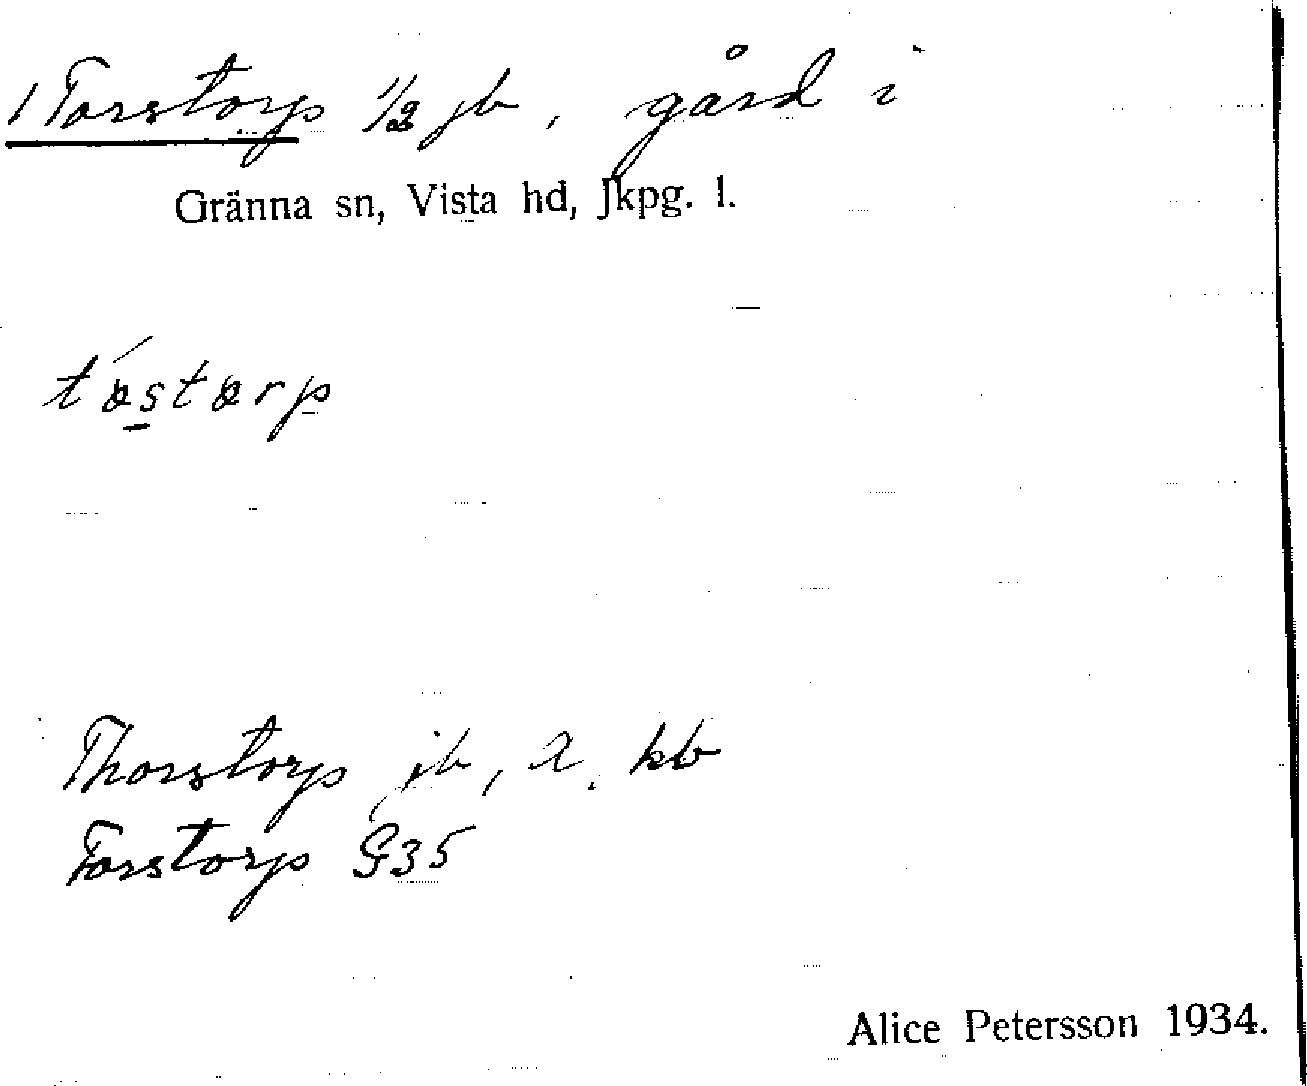 1 Torstorp 1/2 jb, gård i
Gränna sn, Vista hd, Jkpg. l.
Thorstorp jb, A, kb
Torstorp G35
Alice Petersson 1934.